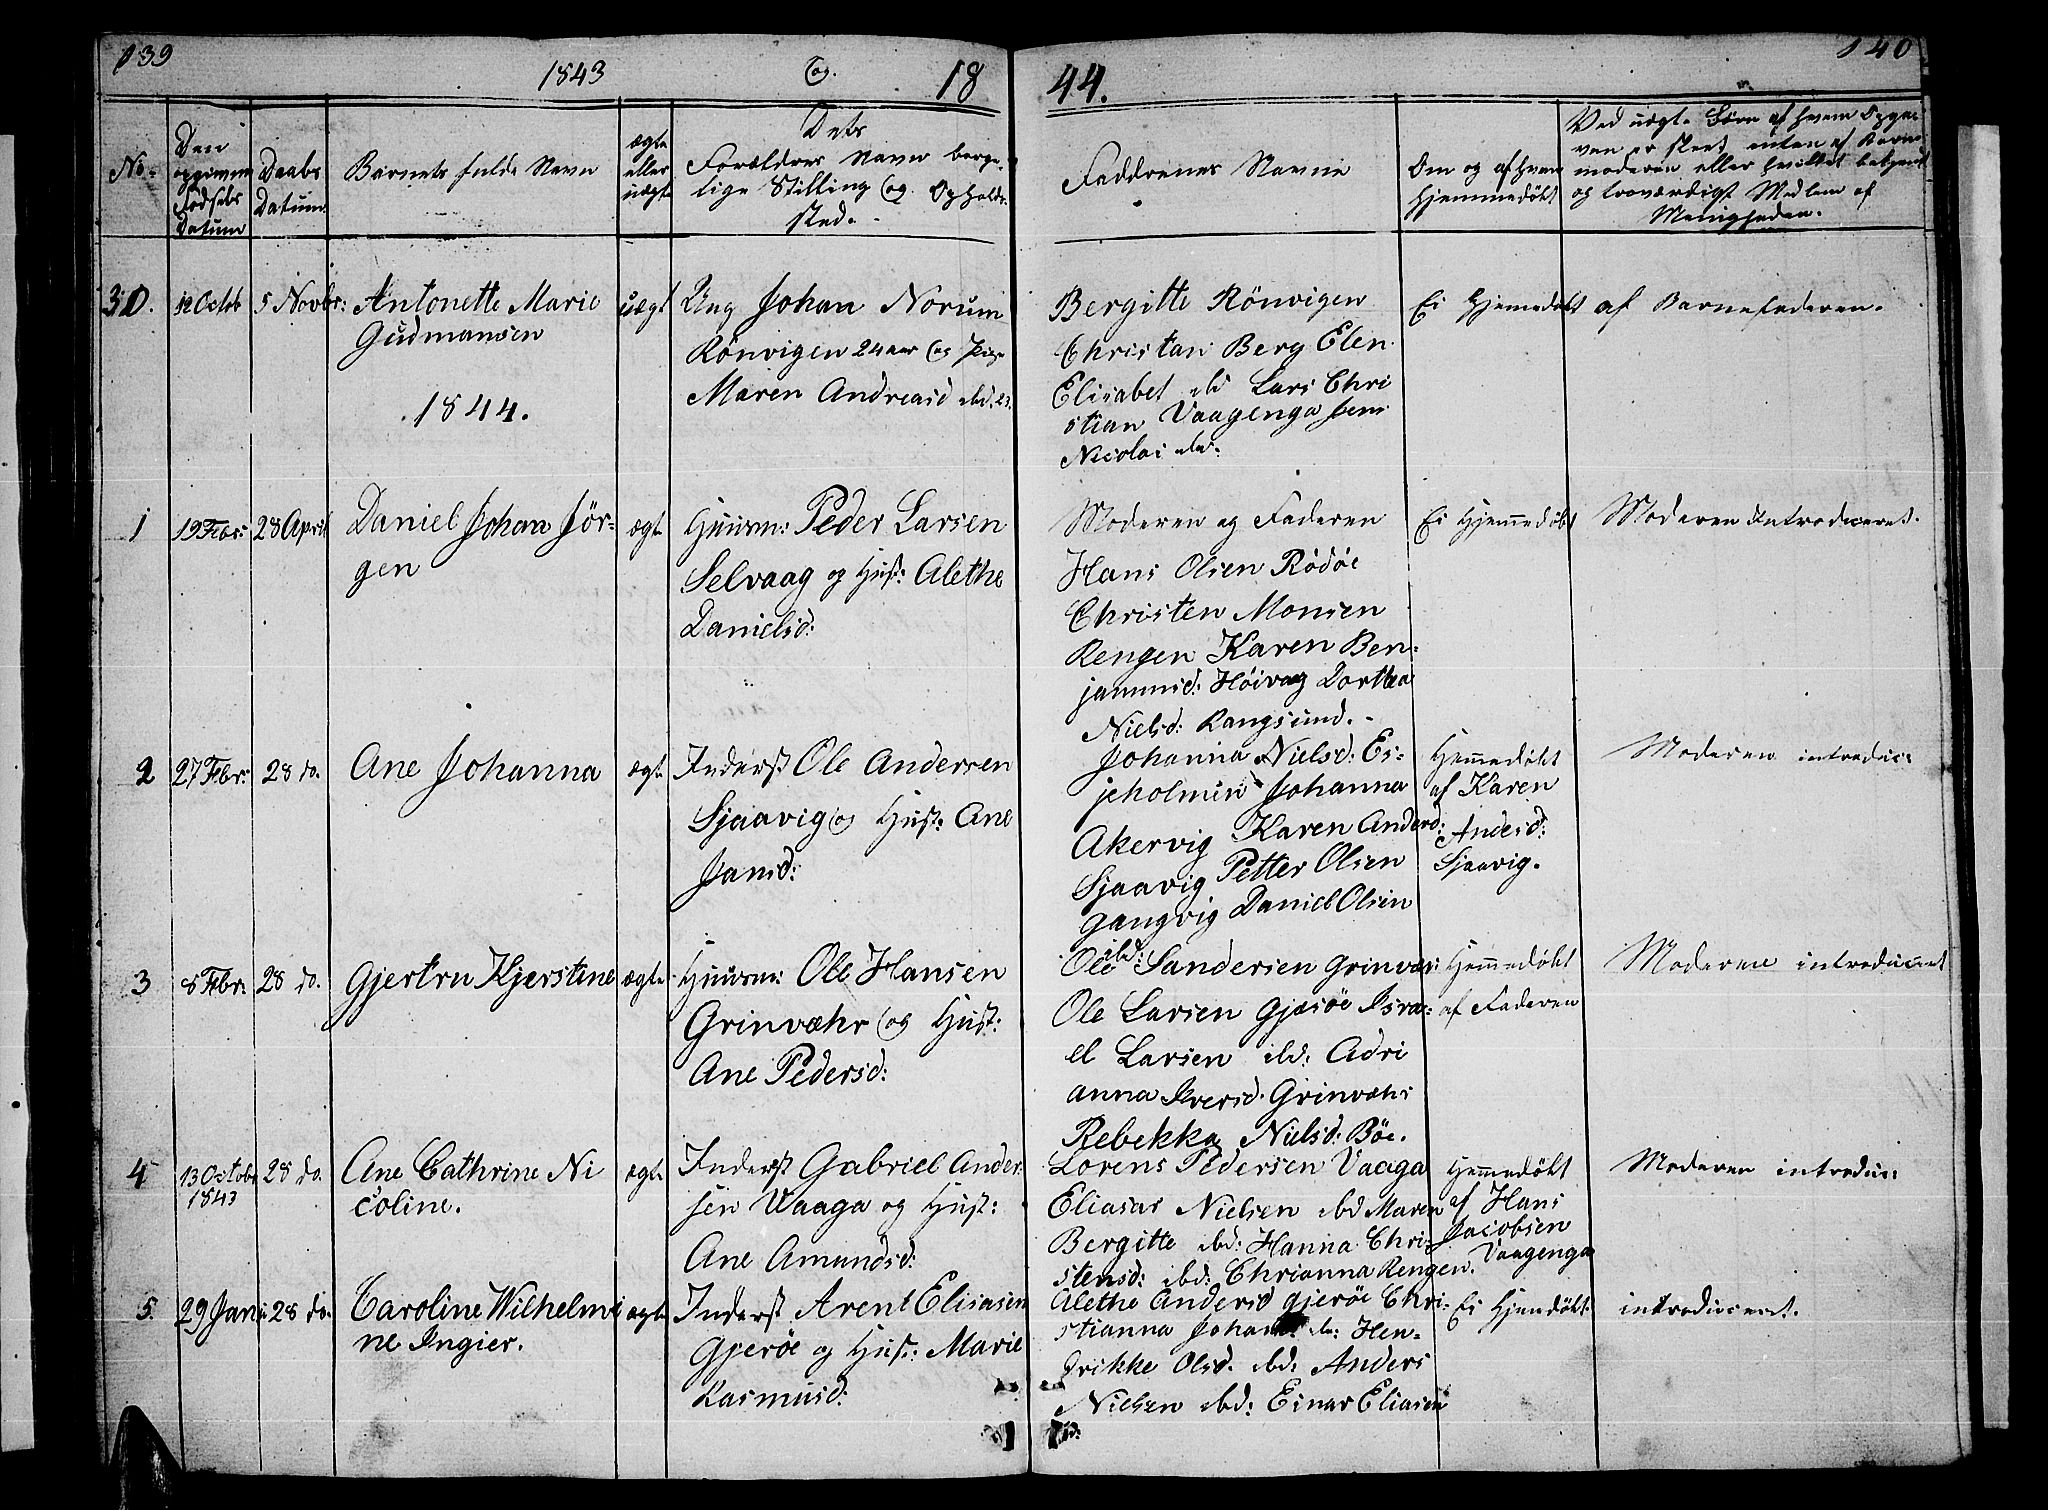 139
1843 og 18
44.
140
No.
Den
opgivne
Fødsels
Datum
Daabs
Datum
Barnets fulde Navn
ægte
eller
uægte
Dets
Forældres Navn borge-
lige Stilling og Opholds-
sted.
Faddrenes Navne
Om og af hvem
Hjemmedøbt
Ved uægte Børn af hvem Opga-
ven er skeet, enten af Barne-
moderen eller hvilket bekjendt
og troværdigt Medlem af
Menigheden.
30.
12 Octbr
5 Novbr:
Antonette Marie
Gudmansen
uægt
Ung Johan Norum
Rönvigen 24 aar og Pige
Maren Andreasd ibd. 23.
Bergitte Rönvigen
Christan Berg Elen
Elisabet ibd Lars Chri
stian Vaagenga Jens
Nicolai ibd:
Ei Hjemedøbt
af Barnefaderen.
1844.
1
19 Febr:
28 April
Daniel Johan Jör-
gen
ægte
Huusm: Peder Larsen
Selvaag og Hust: Alethe
Danielsd:
Moderen og Faderen
Hans Olsen Rödöe
Christen Monsen
Rengen Karen Ben-
jaminsd: Höivag Dorthea
Nielsd: Rangsund.
Ei Hjemmedøbt
Moderen Introduceret.
2
27 Febr:
28 do.
Ane Johanna
ægte
Inderst Ole Andersen
Sjaavig og Hust: Ane
Jansd:
Johanna Nielsd: Es-
jeholmen Johanna
Akervig Karen Andersd:
Sjaavig Petter Olsen
Gangvig Daniel Olsen
ibd:
Hjemmedøbt
af Karen
Andersd:
Sjaavig.
Moderen introduc:
3
8 Febr:
28 do.
Gjertru Kjerstine
ægte
Huusm: Ole Hansen
Grinvæhr og Hust:
Ane Pedersd:
Ole Sandersen Grinvær:
Ole Larsen Gjæsöe Isra-
el Larsen ibd: Adri
anna Iversd. Grinvæhr
Rebekka Nielsd: Böe.
Hjemmedøbt
af Faderen
Moderen introduceret
4
13 Octobr
1843
28 do.
Ane Cathrine Ni
coline.
ægte
Inderst Gabriel Ander
sen Vaaga og Hust:
Ane Amundsd:
Lorens Pedersen Vaaga
Eliasar Nielsen ibd Maren
Bergitte ibd: Hanna Chri-
stensd: ibd: Chrianna Rengen.
Hjemmedøbt
af Hans
Jacobsen
Vaagenga
Moderen introduc:
5.
29 Jan:
28 do.
Caroline Wilhelmi
ne Ingier.
ægte
Inderst Arent Eliasen
Gjeröe og Hust: Marie
Rasmusd:
Alethe Andersd Gjeröe Chri-
stianna Johans ibd: Hen-
drikke Olsd. ibd: Anders
Nielsen ibd: Einar Eliasen
ibd:
Ei Hjemdøbt
introduceret.